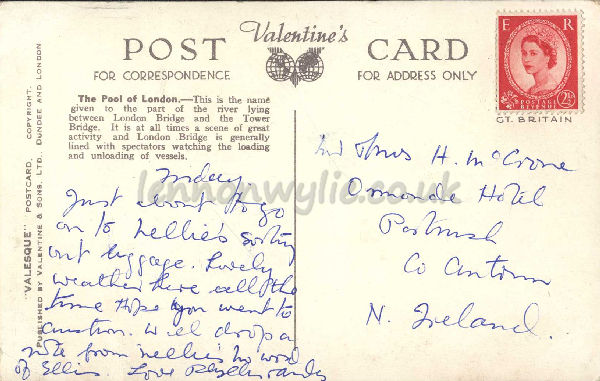 Valentine's
POST CARD
FOR CORRESPONDENCE
FOR ADDRESS ONLY
E R
POSTAGE
REVENUE
2½D
GT. BRITAIN
"VALESQUE" POSTCARD. COPYRIGHT.
PUBLISHED BY VALENTINE & SONS, LTD., DUNDEE AND LONDON
The Pool of London.—This is the name
given to the part of the river lying
between London Bridge and the Tower
Bridge. It is at all times a scene of great
activity and London Bridge is generally
lined with spectators watching the loading
and unloading of vessels.
lennonwylie.co.uk
Just about to go
on to Nellie's sorting
out luggage. Lovely
weather here all the
time Hope you went to
auction. Will drop a
note from Nellies no word
of Ellis. Love
H. McCrone
Ormonde Hotel
Portrush
Co Antrim
N. Ireland.